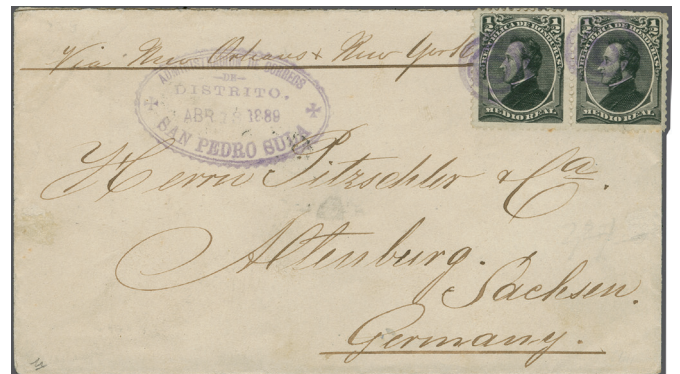 Via New Orleans & New York
ADMINISTRACION DE CORREOS
DE
DISTRITO.
ABR 1889
SAN PEDRO SULA
1/2 REPUBLICA DE HONDURAS 1/2
MEDIO REAL
1/2 REPUBLICA DE HONDURAS 1/2
MEDIO REAL
Herrn Pitzschler & Ca.
Altenburg.
Sachsen.
Germany.